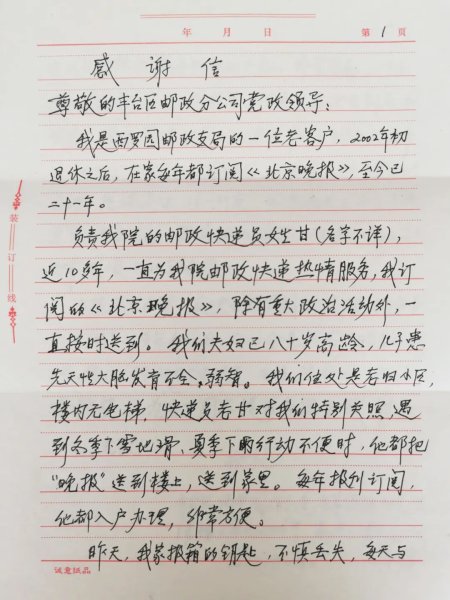 年 月 日 第1页
感谢信
尊敬的丰台区邮政分公司党政领导：
我是西罗园邮政支局的一位老客户，2002年初
退休之后，在家每年都订阅《北京晚报》，至今已
二十一年。
负责我院的邮政快递员女生甘（名字不详），
近10多年，一直为我院邮政快递热情服务，我订
阅的《北京晚报》，除有重大政治活动外，一
直按时送到。我们夫妇已八十岁高龄，儿子患
先天性大脑发育不全、弱智。我们住处是老旧小区，
楼内无电梯，快递员老甘对我们特别关照，遇
到冬季下雪地滑，夏季下雨行动不便时，他都把
“晚报”送到楼上，送到家里。每年报刊订阅，
他都入户办理，非常方便。
昨天，我家报箱的钥匙，不慎丢失，每天与
装订线
诚意诚品